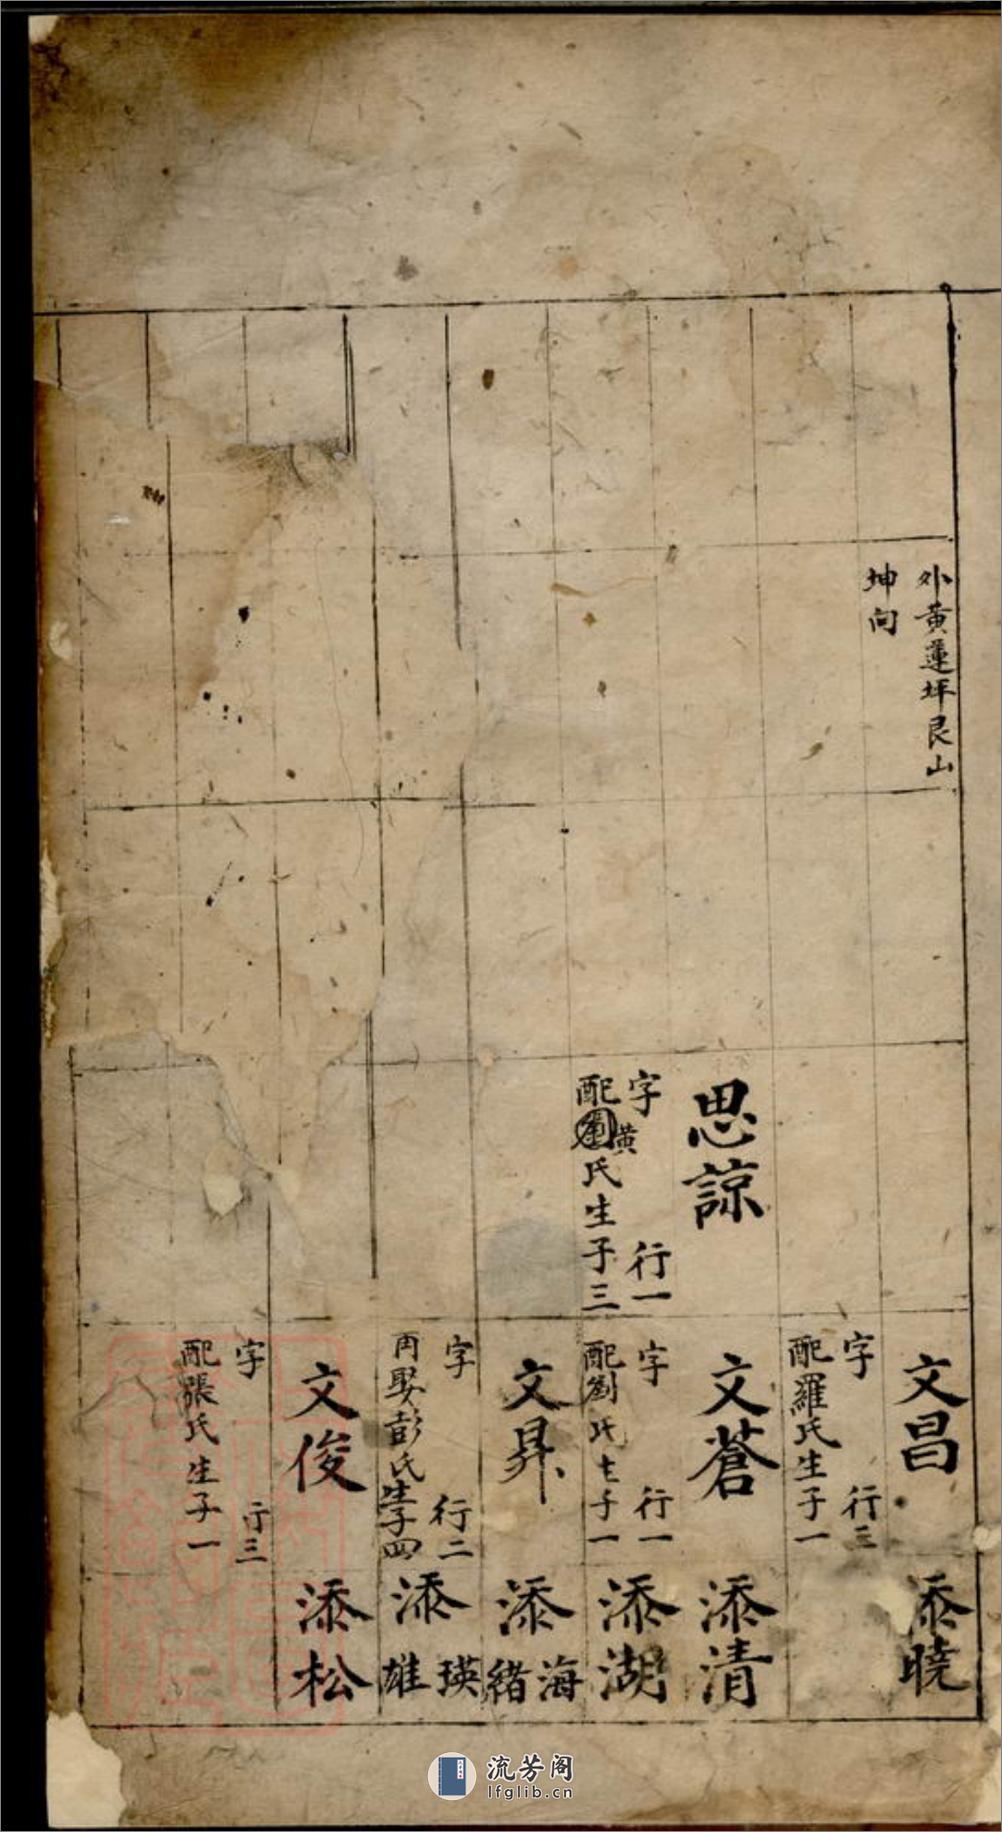 外黄蓮坪艮山
坤向
思諒
字 行一
配劉黃氏生子三
文昌
字 行三
配羅氏生子一
文蒼
字 行一
配劉氏生子一
文昇
字 行二
再娶彭氏生子四
文俊
字 行三
配張氏生子一
添曉
添清
添湖
添海緒
添瑛雄
添松
流芳阁
lfglib.cn